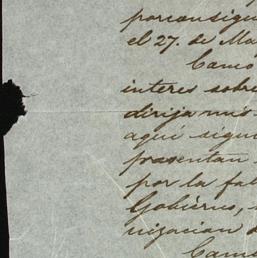 porconsigui
el 27. de Ma
Camo
interes sobre
dirija mis
aquí sigue
presentan
por la fal
Gobierno,
nizacion d
Camo